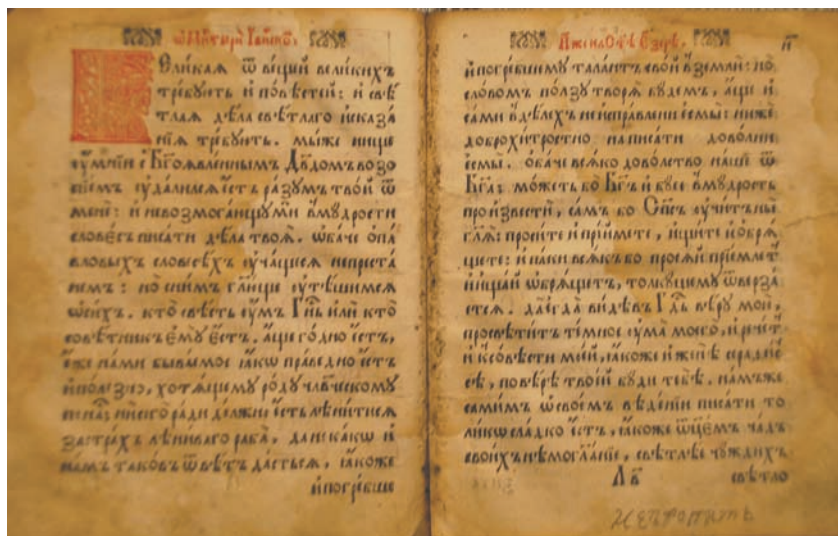 ѡ Мнтырѝ Їве́рскоⷨ.
Вели́каѧ ѿ вѣ́щей вели́кихъ
тре́бꙋютъ и҆ по́вѣстей: и҆ свѣ́
тлаѧ дѣ́ла свѣ́тлагѡ и҆сказа́
нїѧ тре́бꙋютъ. мы́же ни́щїе
ᲂу҆мнїи с̾ Бг҃оѧвле́ннымъ Дв҃домъ возо
пїе́мъ ᲂу҆дали́лсѧ є҆́сть ра́зꙋмъ тво́й ѿ
менѐ: и҆
словесъ писа́ти дѣ́ла твоѧ̑. ѻ҆ба́че ѿ па́
вловыхъ слове́съ ᲂу҆ча́щесѧ непреста́
немъ: но̀ сни́мъ гл҃юще ᲂу҆тѣши́мсѧ
ѡ҆си́хъ. кто̀ свѣ́сть ᲂу҆́мъ Гн҃ь и҆лѝ кто̀
совѣ́тникъ є҆мꙋ̀ є҆́сть. а҆́ще го́дно є҆́сть,
є҆́же на́ми быва́мое ꙗ҆́кѡ пра́ведно є҆́сть
и҆поле́зно, хотѧ́щемꙋ ро́дꙋ чл҃вѣ́ческомꙋ
ра́ди до́лжни є҆́сть лѣни́тисѧ
застра́хъ лѣни́вагѡ раба̀, дане́ка́кѡ и҆
на́мъ тако́въ ѿвѣ́тъ да́стьсѧ, ꙗ҆́коже
и҆погре́бше
А҆́же на Ст҃ѣ Є҆́зерѣ. и҃
и҆погре́бшемꙋ тала́нтъ сво́й в̾землѝ: но̀
сло́вомъ по́лзꙋ творѧ̀ бꙋ́демъ, а҆́ще и҆
са́ми в̾дѣ́лехъ неи҆спра́влени є҆смы̀: нижѐ
доброхи́тростно написа́ти дово́лни
є҆смы̀. ѻ҆ба́че всѧ́ко дово́лство на́ше ѿ
Бг҃а: мо́жетъ бо̀ Бг҃ъ и҆ бꙋ́ее в̾мꙋ́дрость
произвестѝ, са́мъ бо Сп҃съ ᲂу҆чи́тъ ны̀
гл҃ѧ: проси́те и҆ прїи́мете, и҆щи́те и҆ ѡ҆брѧ́
щете: и҆ па́ки всѧ́къ бо просѧ́й прїе́млетъ
и҆ и҆ща́й ѡ҆брѧ́щетъ, толкꙋ́щемꙋ ѿверза́
етсѧ. да є҆гда̀ ви́дѣвъ Гд҃ь вѣ́рꙋ мою̀,
просвѣти́тъ те́мное ᲂу҆ма̀ моегѡ̀, и҆ рече́тъ
и҆ к̾ со́вѣсти мое́й, ꙗ҆́коже и҆ женѣ̀
по вѣ́рѣ твое́й бꙋ́ди тебѣ̀. на́мъже
сами́мъ ѡ҆ свое́мъ вѣ́дѣнїи писа́ти то
ли́кѡ сла́дко є҆́сть, ꙗ҆́коже ѻ҆тце́мъ ча́дъ
свои́хъ нѣмогла́нїе, свѣтлѣ́е чꙋжди́хъ
л҃в свѣ́тло